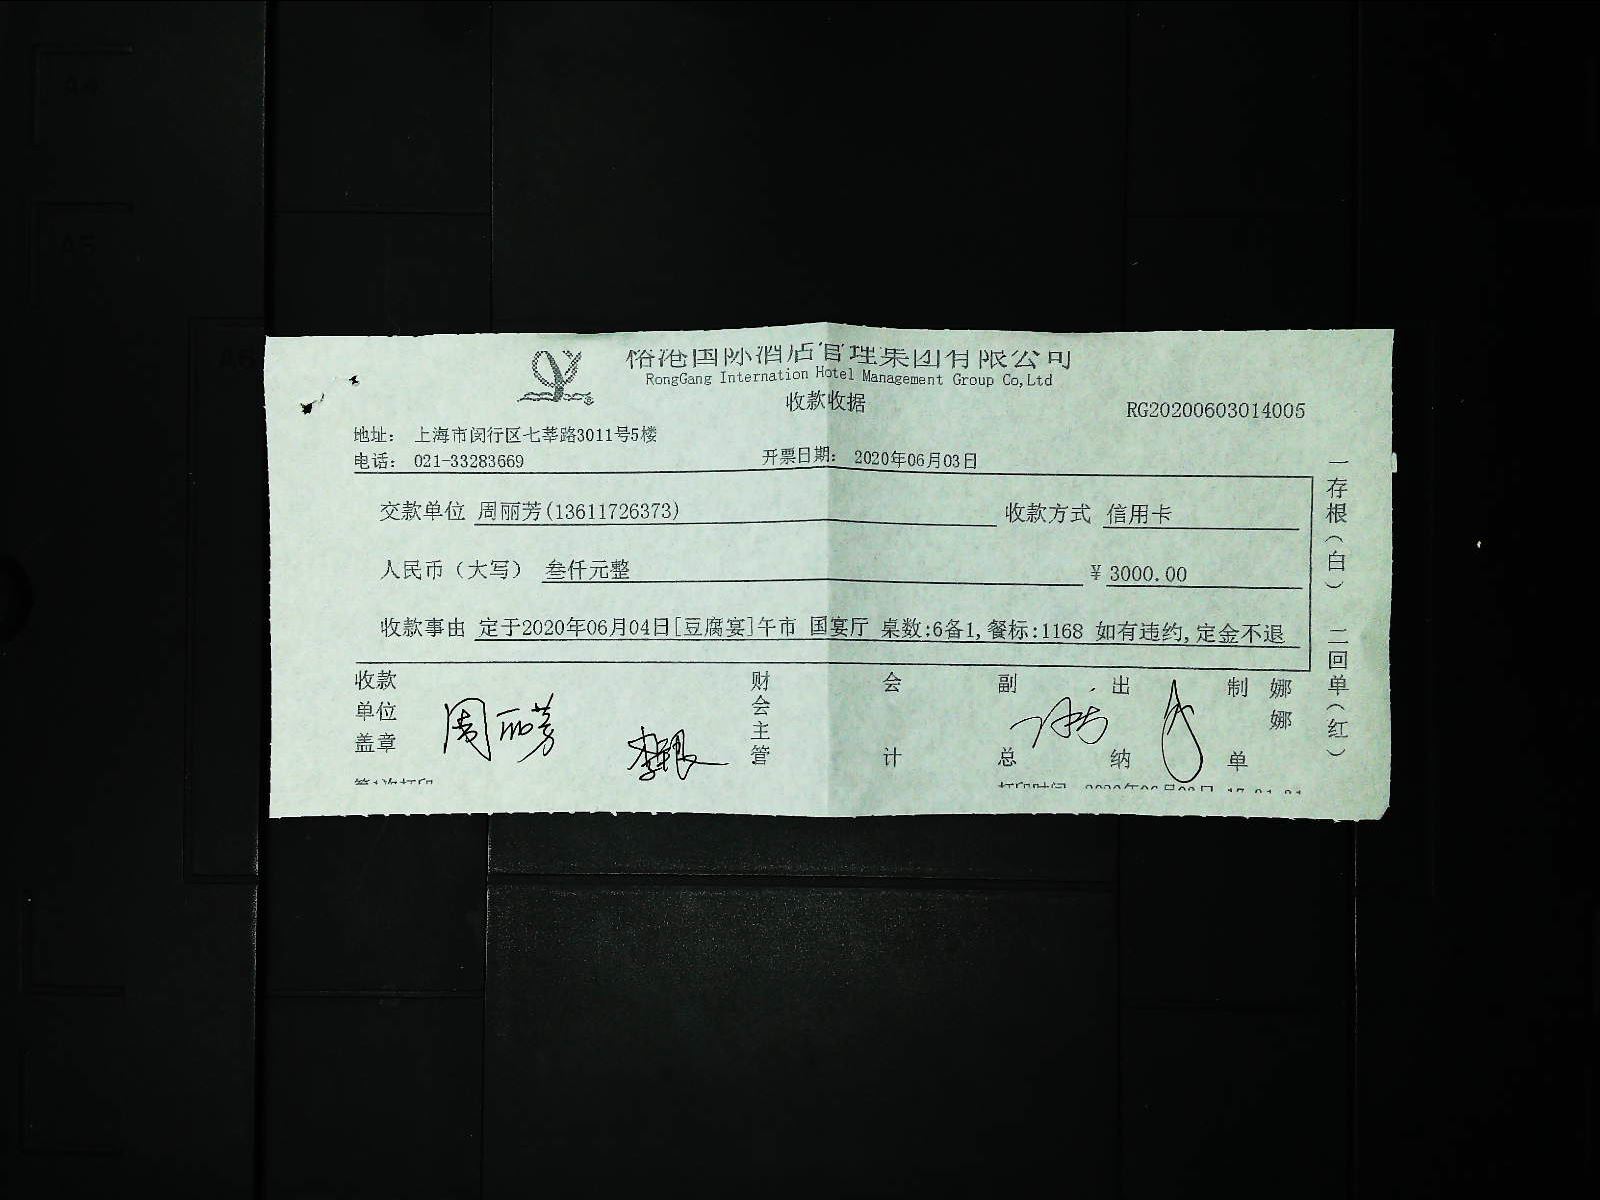 裕港国际酒店管理集团有限公司
RongGang Internation Hotel Management Group Co,Ltd
收款收据
RG20200603014005
地址： 上海市闵行区七莘路3011号5楼
电话： 021-33283669
开票日期： 2020年06月03日
交款单位 周丽芳(13611726373) 收款方式 信用卡
人民币（大写） 叁仟元整 ¥ 3000.00
收款事由 定于2020年06月04日[豆腐宴]午市 国宴厅 桌数:6备1,餐标:1168 如有违约,定金不退
一存根（白） 二回单（红）
收款单位盖章 周丽芳
财会主管
会计
副总
出纳
制单 娜娜
第1次打印
打印时间
A4
A5
A6